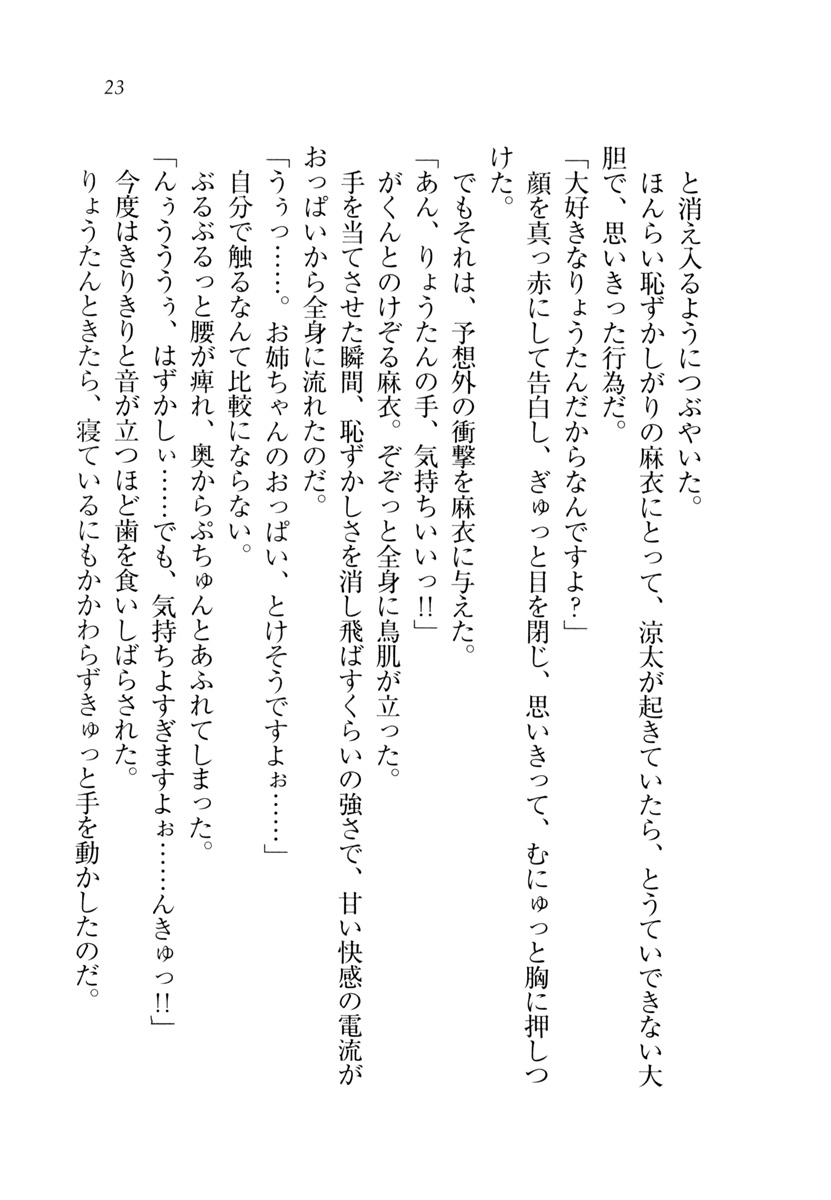 23
と消え入るようにつぶやいた。
ほんらい恥ずかしがりの麻衣にとって、涼太が起きていたら、とうていできない大
胆で、思いきった行為だ。
「大好きなりょうたんだからなんですよ?」
顔を真っ赤にして告白し、ぎゅっと目を閉じ、思いきって、むにゅっと胸に押しつ
けた。
でもそれは、予想外の衝撃を麻衣に与えた。
「あん、りょうたんの手、気持ちいいっ!!」
がくんとのけぞる麻衣。ぞぞっと全身に鳥肌が立った。
手を当てさせた瞬間、恥ずかしさを消し飛ばすくらいの強さで、甘い快感の電流が
おっぱいから全身に流れたのだ。
「うぅっ……。お姉ちゃんのおっぱい、とけそうですよぉ……」
自分で触るなんて比較にならない。
ぶるぶるっと腰が痺れ、奥からぷちゅんとあふれてしまった。
「んぅうううぅ、はずかしぃ……でも、気持ちよすぎますよぉ……んきゅっ!!」
今度はきりきりと音が立つほど歯を食いしばらされた。
りょうたんときたら、寝ているにもかかわらずきゅっと手を動かしたのだ。